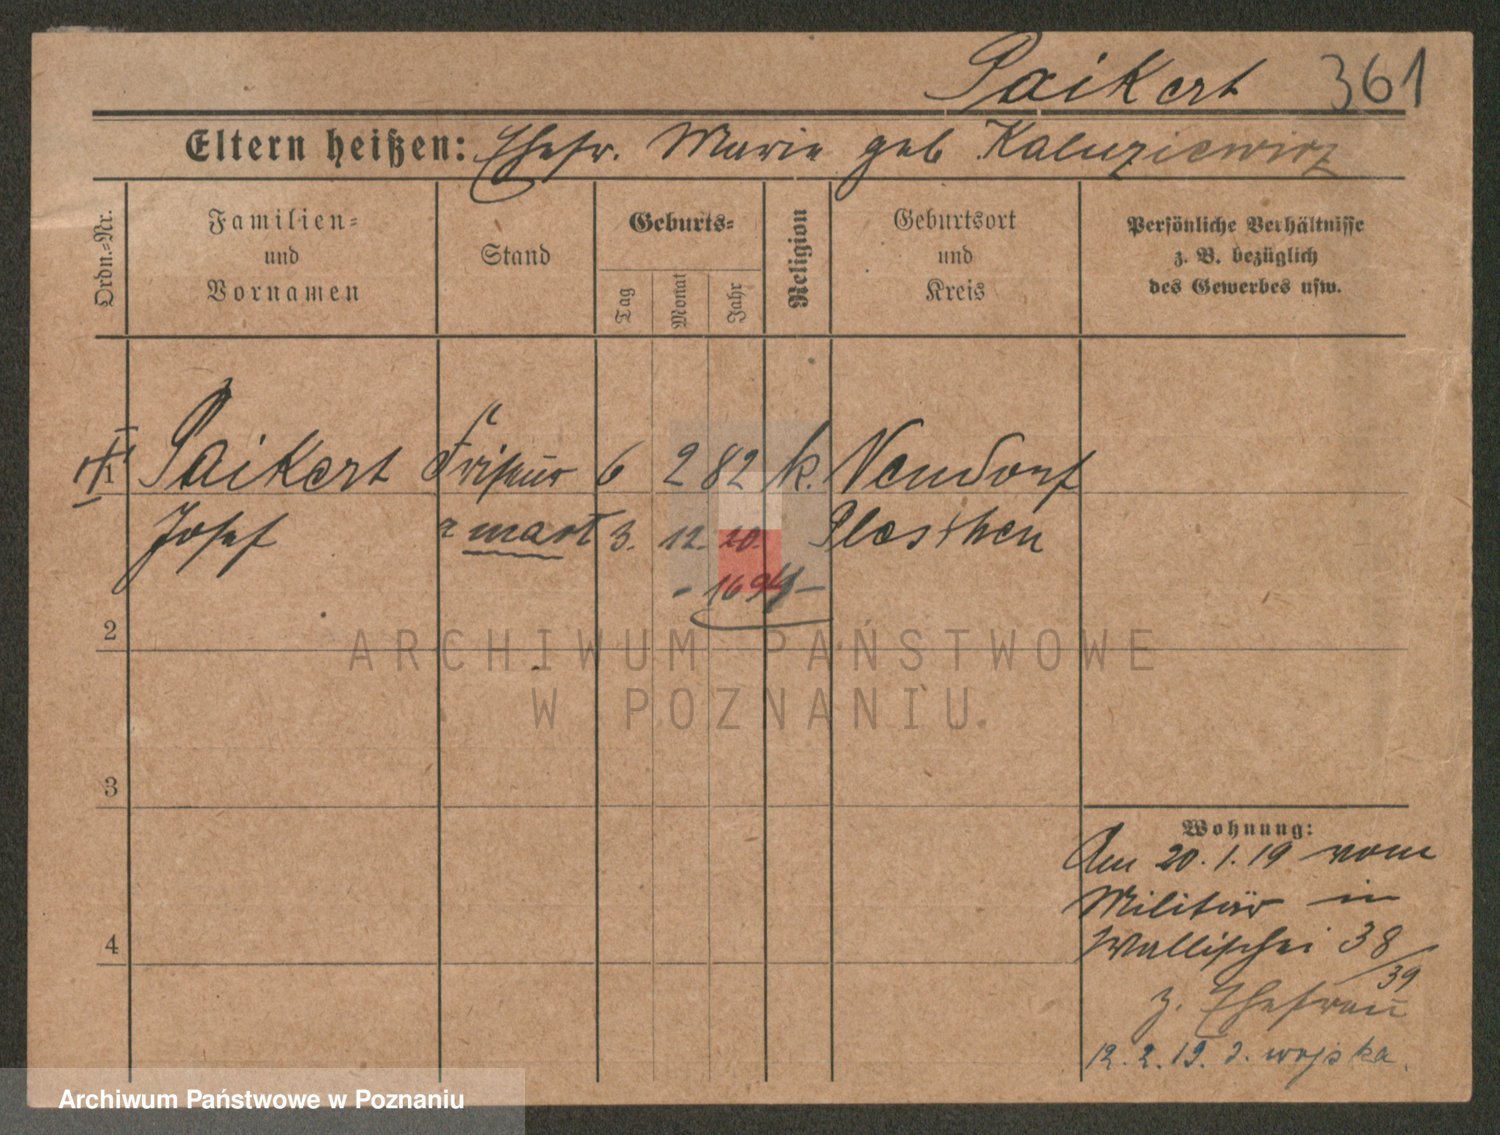 Paikert 361
Eltern heißen: Ehefr. Marie geb Kaluziewicz
Ordn.-Nr.
Familien-
und
Vornamen
Stand
Geburts-
Tag
Monat
Jahr
Religion
Geburtsort
und
Kreis
Persönliche Verhältnisse
z. B. bezüglich
des Gewerbes usw.
1 Paikert Friseur 6 2 82 k. Neudorf
Josef mart 3. 12. 20. Pleschen
- 1694 -
2
3
4
Wohnung:
Am 20. 1. 19 vom
Militär in
Wallischei 38/39
z. Ehefrau
12. 2. 19. z. wojska.
ARCHIWUM PAŃSTWOWE
W POZNANIU
Archiwum Państwowe w Poznaniu